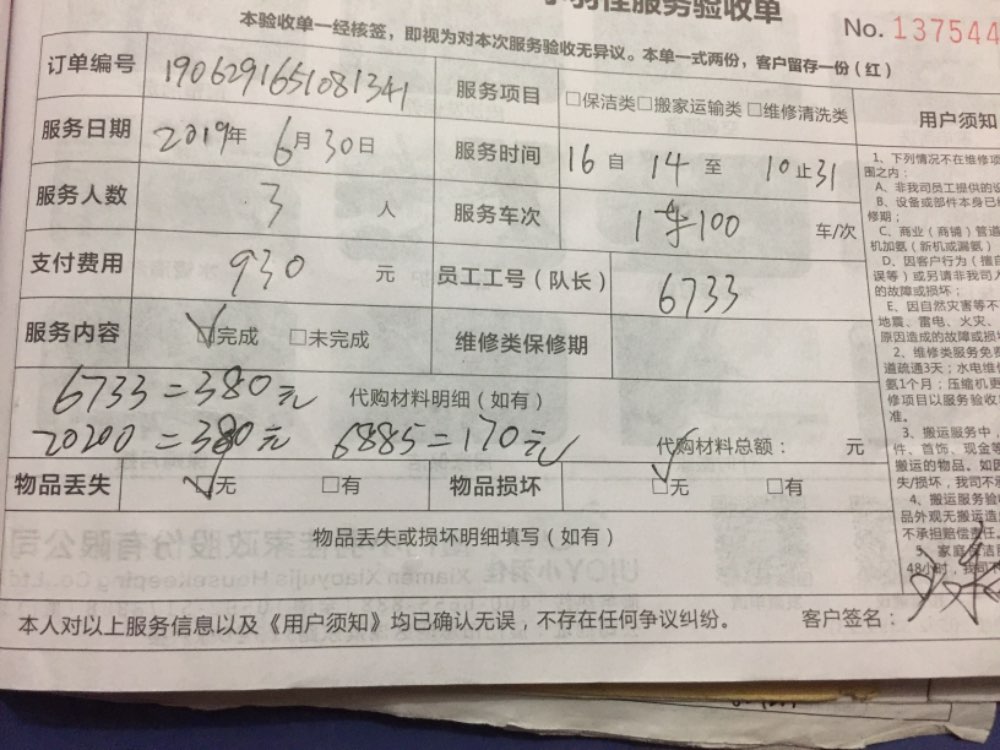 服务验收单
No. 137544
本验收单一经核签，即视为对本次服务验收无异议。本单一式两份，客户留存一份（红）
订单编号 1906291651081341 服务项目 □保洁类□搬家运输类 □维修清洗类
服务日期 2019年 6月30日 服务时间 16自 14至 10止31
服务人数 3 人 服务车次 1车100 车/次
支付费用 930 元 员工工号（队长） 6733
服务内容 ☑完成 □未完成 维修类保修期
6733=380元 代购材料明细（如有）
20200=380元 6885=170元 代购材料总额： 元
物品丢失 ☑无 □有 物品损坏 ☑无 □有
物品丢失或损坏明细填写（如有）
本人对以上服务信息以及《用户须知》均已确认无误，不存在任何争议纠纷。 客户签名：
用户须知
1、下列情况不在维修项
围之内：
A、非我司员工提供的
B、设备或部件本身已
修期；
C、商业（商铺）管道
机加氨（新机或漏氨）
D、因客户行为（擅自
误等）或另请非我司人
的故障或损坏；
E、因自然灾害等不
地震、雷电、火灾、
原因造成的故障或损
2、维修类服务免费
道疏通3天；水电维
氨1个月；压缩机更
修项目以服务验收
准。
3、搬运服务中，
件、首饰、现金等
搬运的物品。如因
失/损坏，我司不承
4、搬运服务验
品外观无搬运造
不承担赔偿责任。
5、家庭保洁
48小时，我司不